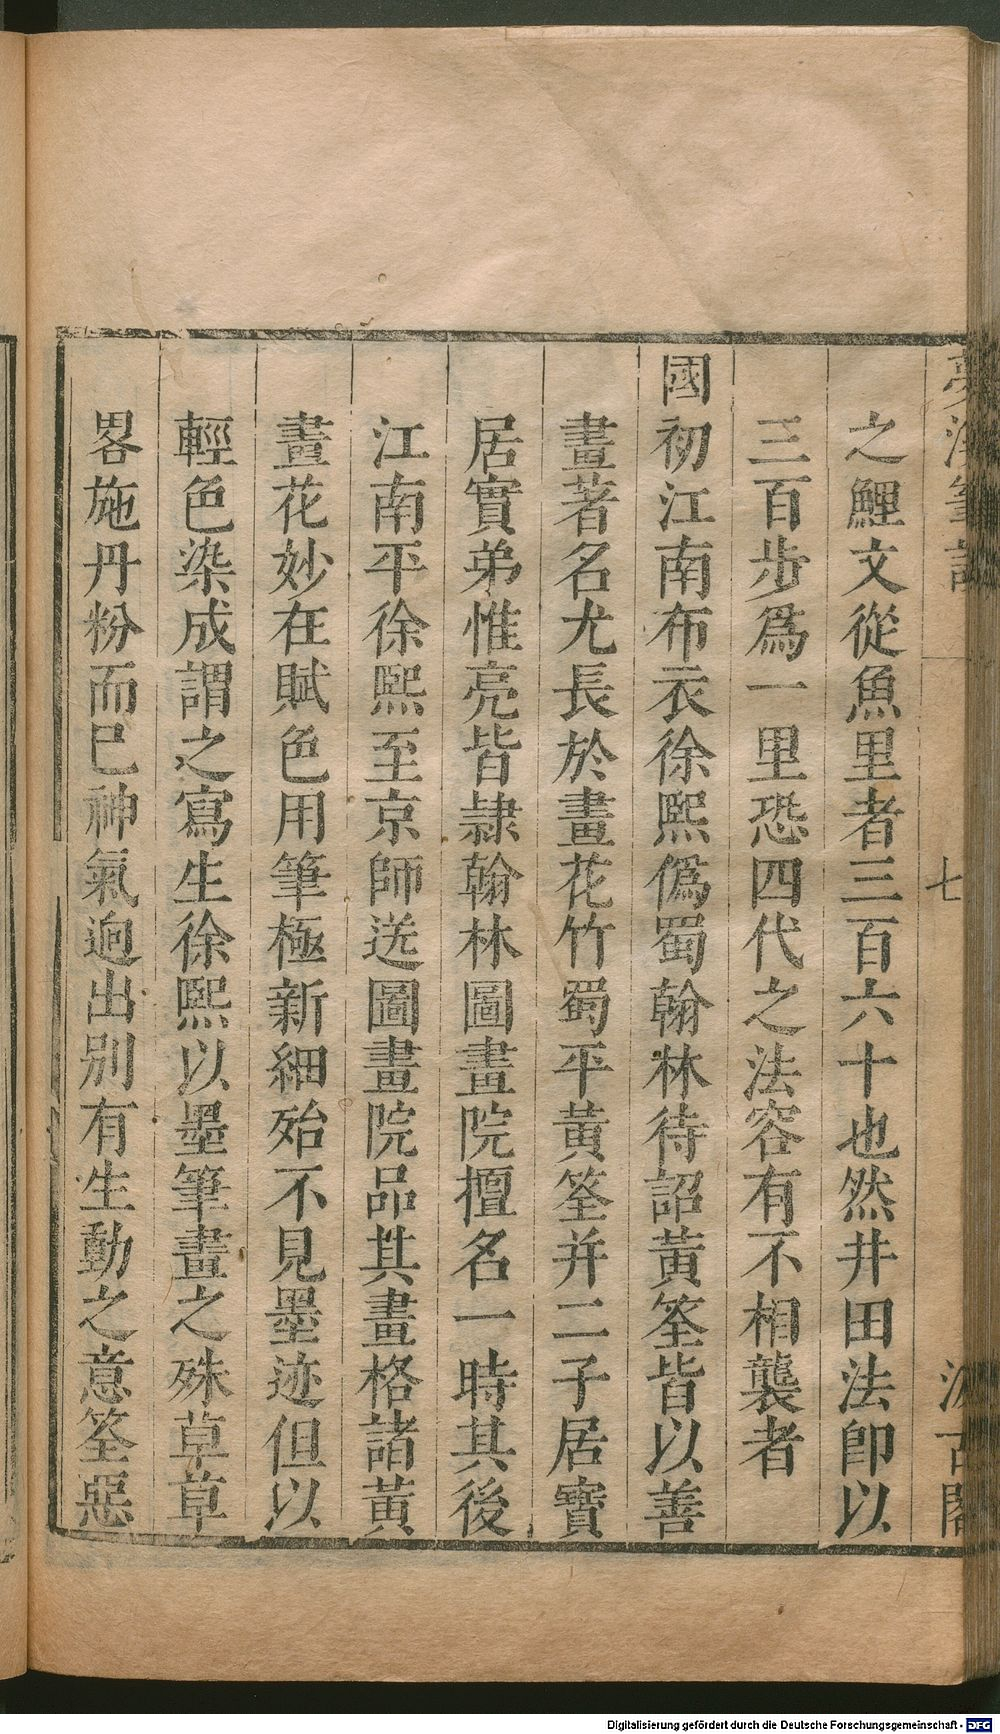 夢溪筆談
七
汲古閣
之鯉文從魚里者三百六十也然井田法卽以
三百步爲一里恐四代之法容有不相襲者
國初江南布衣徐熙僞蜀翰林待詔黃筌皆以善
畫著名尤長於畫花竹蜀平黃筌并二子居寶
居實弟惟亮皆隷翰林圖畫院擅名一時其後
江南平徐熙至京師送圖畫院品其畫格諸黃
畫花妙在賦色用筆極新細殆不見墨迹但以
輕色染成謂之寫生徐熙以墨筆畫之殊草草
畧施丹粉而已神氣迥出別有生動之意筌惡
Digitalisierung gefördert durch die Deutsche Forschungsgemeinschaft - DFG